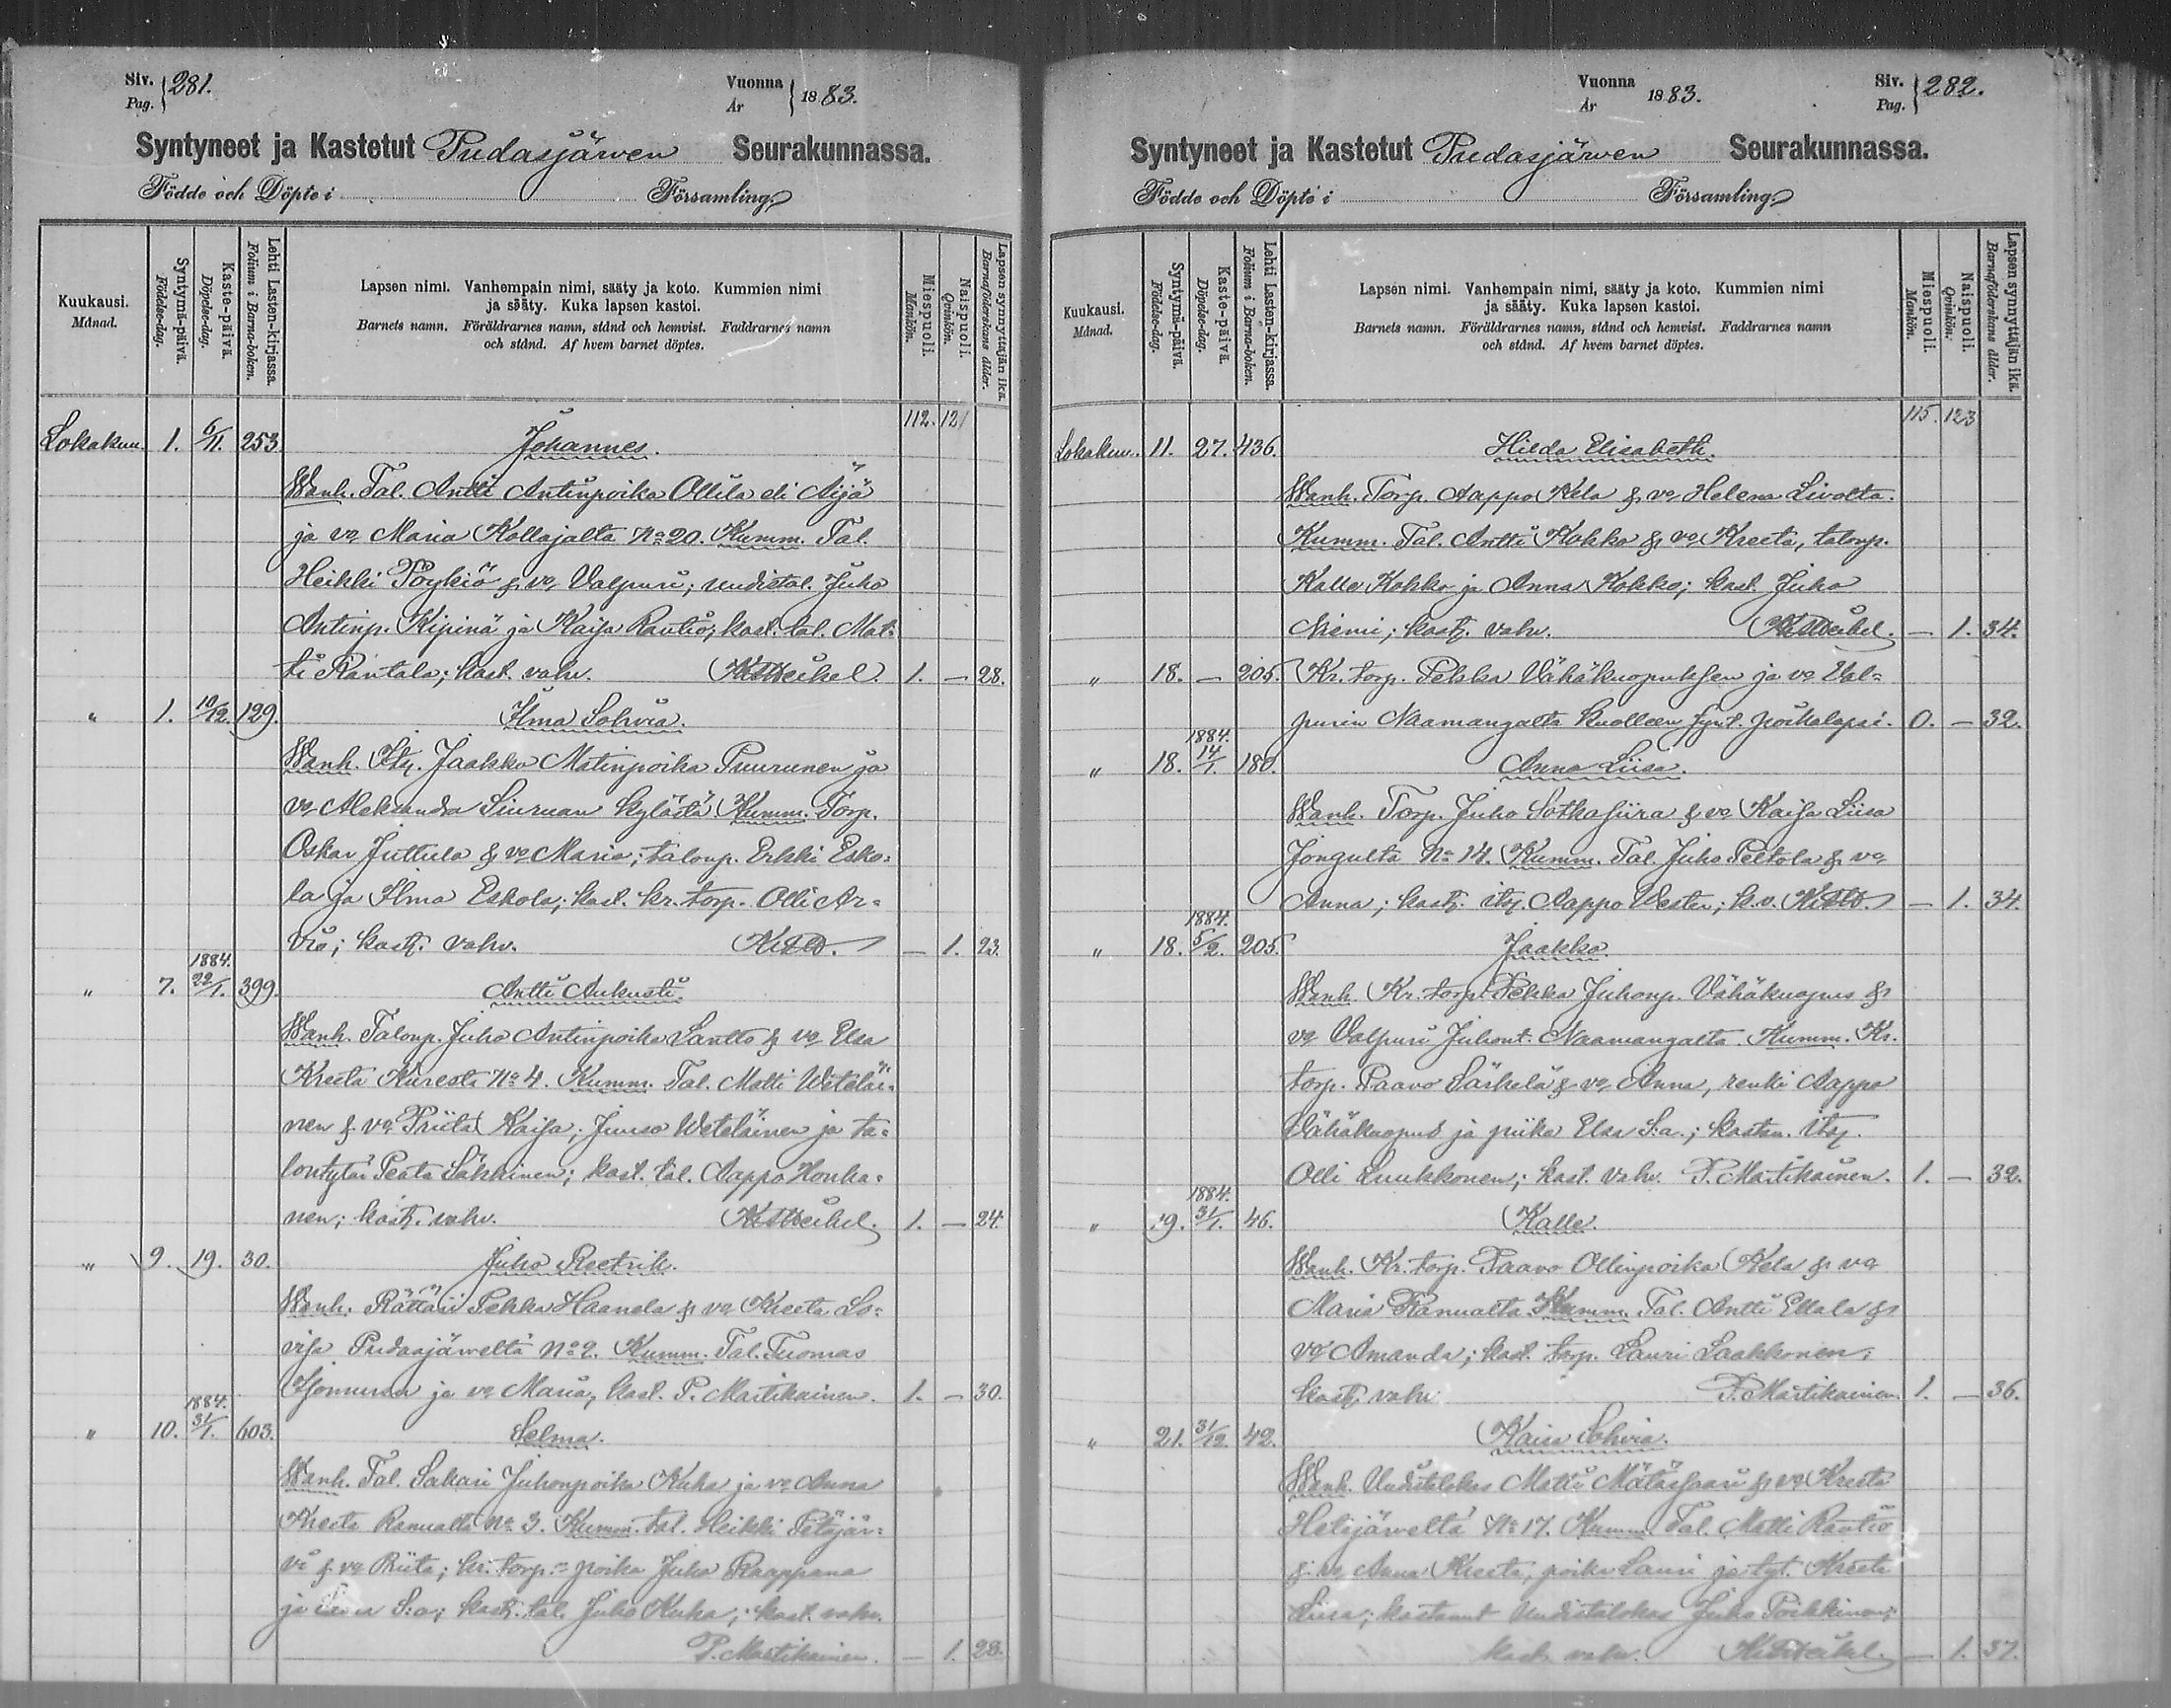 Siv. Pag. 281.
Vuonna År 1883.
Syntyneet ja Kastetut Pudasjärwen Seurakunnassa.
Födde och Döpte i Församling
Kuukausi. Månad.
Syntymä-päivä. Födelse-dag.
Kaste-päivä. Döpelse-dag.
Lehti Lasten-kirjassa. Folium i Barna-boken.
Lapsen nimi. Vanhempain nimi, sääty ja koto. Kummien nimi
ja sääty. Kuka lapsen kastoi.
Barnets namn. Föräldrarnes namn, stånd och hemvist. Faddrarnes namn
och stånd. Af hvem barnet döptes.
Miespuoli. Mankön.
Naispuoli. Qvinkön.
Lapsen synnyttäjän ikä. Barnaföderskans ålder.
112. 121
Lokakuu. 1. 6/11. 253. Johannes.
Wanh. Tal. Antti Antinpoika Ollila eli Äijä
ja vo Maria Kollajalta No 20. Kumm. Tal.
Heikki Pöykiö & vo Valpuri; uudistal. Juho
Antinp. Kipinä ja Kaisa Rautio; kast. tal. Mat-
ti Rantala; kast. vahv. 1. — 28.
" 1. 10/12. 129. Ilma Sohvia.
Wanh. Jaakko Matinpoika Puurunen ja
vo Aleksandra Siuruan kylästä Kumm. Torp.
Oskar Juttula & vo Maria; taloup. Erkki Esko-
la ja Ilma Eskola; kast. kr. torp. Olli Ar-
vio; kast. vahv. — 1. 23.
1884.
" 7. 22/1. 399. Antti Aukusti.
Wanh. Taloup. Juho Antinpoika Lantto & vo Elsa
Kreeta No 4. Kumm. Tal. Matti Weteläi-
nen & vo Priita Kaisa; Juuso Weteläinen ja ta-
lontytär Säkkinen; kast. tal. Aappo Honka-
nen; kast. vahv. 1. — 24.
" 9. 19. 30. Juho Reetrik.
Wanh. Rättäri Pekka Haanela & vo Kreeta Lo-
visa Pudasjärweltä No 2. Kumm. Tal. Tuomas
ja vo Maria, kast. P. Martikainen. 1. — 30.
1884.
" 10. 31/1. 603. Selma.
Wanh. Tal. Sakari Juhonpoika Kuha ja vo Anna
Kreeta Ranualta No 3. Kumm. tal. Heikki Petäjär-
vi & vo Riita; kr. torp. poika Juho Raappana
ja S:a; kast. tal. Juho Kuha; kast. vahv.
P. Martikainen. — 1. 28.
Vuonna År 1883.
Siv. Pag. 282.
Syntyneet ja Kastetut Pudasjärwen Seurakunnassa.
Födde och Döpte i Församling
Kuukausi. Månad.
Syntymä-päivä. Födelse-dag.
Kaste-päivä. Döpelse-dag.
Lehti Lasten-kirjassa. Folium i Barna-boken.
Lapsen nimi. Vanhempain nimi, sääty ja koto. Kummien nimi
ja sääty. Kuka lapsen kastoi.
Barnets namn. Föräldrarnes namn, stånd och hemvist. Faddrarnes namn
och stånd. Af hvem barnet döptes.
Miespuoli. Mankön.
Naispuoli. Qvinkön.
Lapsen synnyttäjän ikä. Barnaföderskans ålder.
115. 123
Lokakuu. 11. 27. 436. Hilda Elisabeth.
Wanh. Torp. Aappo Kela & vo Helena Livolta.
Kumm. Tal. Antti Kokko & vo Kreeta, taloup.
Kalle Kokko ja Anna Kokko; kast. Juho
Niemi; kast. vahv. — 1. 34.
" 18. — 205. Kr. torp. Pekka Vähäkuopuksen ja vo Val-
purin Naamangalta kuolleen synt. poikalapsi. 0. — 32.
1884.
" 18. 14/1. 180. Anna Liisa.
Wanh. Torp. Juho Sotkasiira & vo Kaisa Liisa
Jongulta No 14. Kumm. Tal. Juho Peltola & vo
Anna; kast. its. Aappo Wester; k.v. — 1. 34.
1884.
" 18. 5/2. 205. Jaakko.
Wanh. Kr. torp. Pekka Juhonp. Vähäkuopus &
vo Valpuri Juhont. Naamangalta. Kumm. Kr.
torp. Paavo Särkelä & vo Anna, renki Aappo
Vähäkuopus ja piika Elsa S:a.; kastan. its.
Olli Luukkonen; kast. vahv. P. Martikainen. 1. — 32.
1884.
" 19. 31/1. 46. Kalle.
Wanh. Kr. torp. Paavo Ollinpoika Kela & vo
Maria Ranualta. Kumm. Tal. Antti Ellala &
vo Amanda; kast. torp. Lauri Laakkonen;
kast. vahv. P. Martikainen 1. — 36.
" 21. 31/12. 42. Kaisa Sohvia.
Wanh. Uudistalokas Matti Mätäsaari & vo Kreeta
Hetejärweltä No 17. Kumm. Tal. Matti Rautio
& vo Anna Kreeta, poika Lauri ja tyt. Kreeta
Liisa; kastanut Uudistalokas Juho Poikkinen;
kast. vahv. — 1. 37.